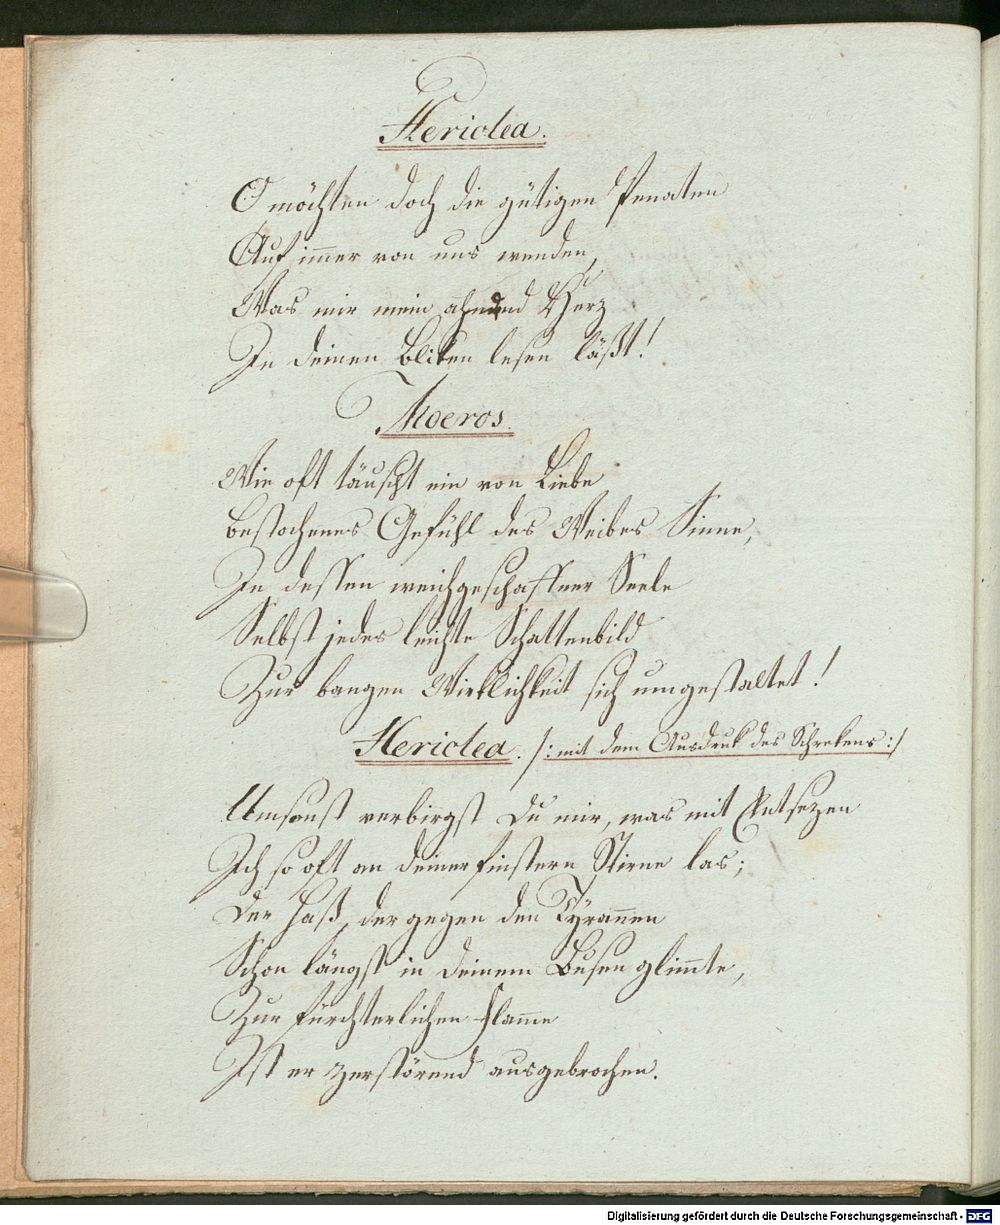 Hericlea.
O möchten doch die gütigen Penaten
Auf im̅er von uns wenden,
Was mir mein ahnend Herz
In deinen Bliken lesen läßt!
Moeros.
Wie oft täuscht ein von Liebe
bestochenes Gefühl des Weibes Sinne,
In dessen weichgeschaffner Seele
Selbst jedes leichte Schattenbild
Zur bangen Wirklichkeit sich umgestaltet!
Hericlea. /: mit dem Ausdruk des Schrekens :/
Umsonst verbirgst Du mir, was mit Entsezen
Ich so oft an deiner finstern Stirne las;
Der Haß, der gegen den Tÿran̅en
Schon längst in deinem Busen glim̅te,
Zur fürchterlichen Flam̅e
Ist er zerstörend ausgebrochen.
Digitalisierung gefördert durch die Deutsche Forschungsgemeinschaft - DFG